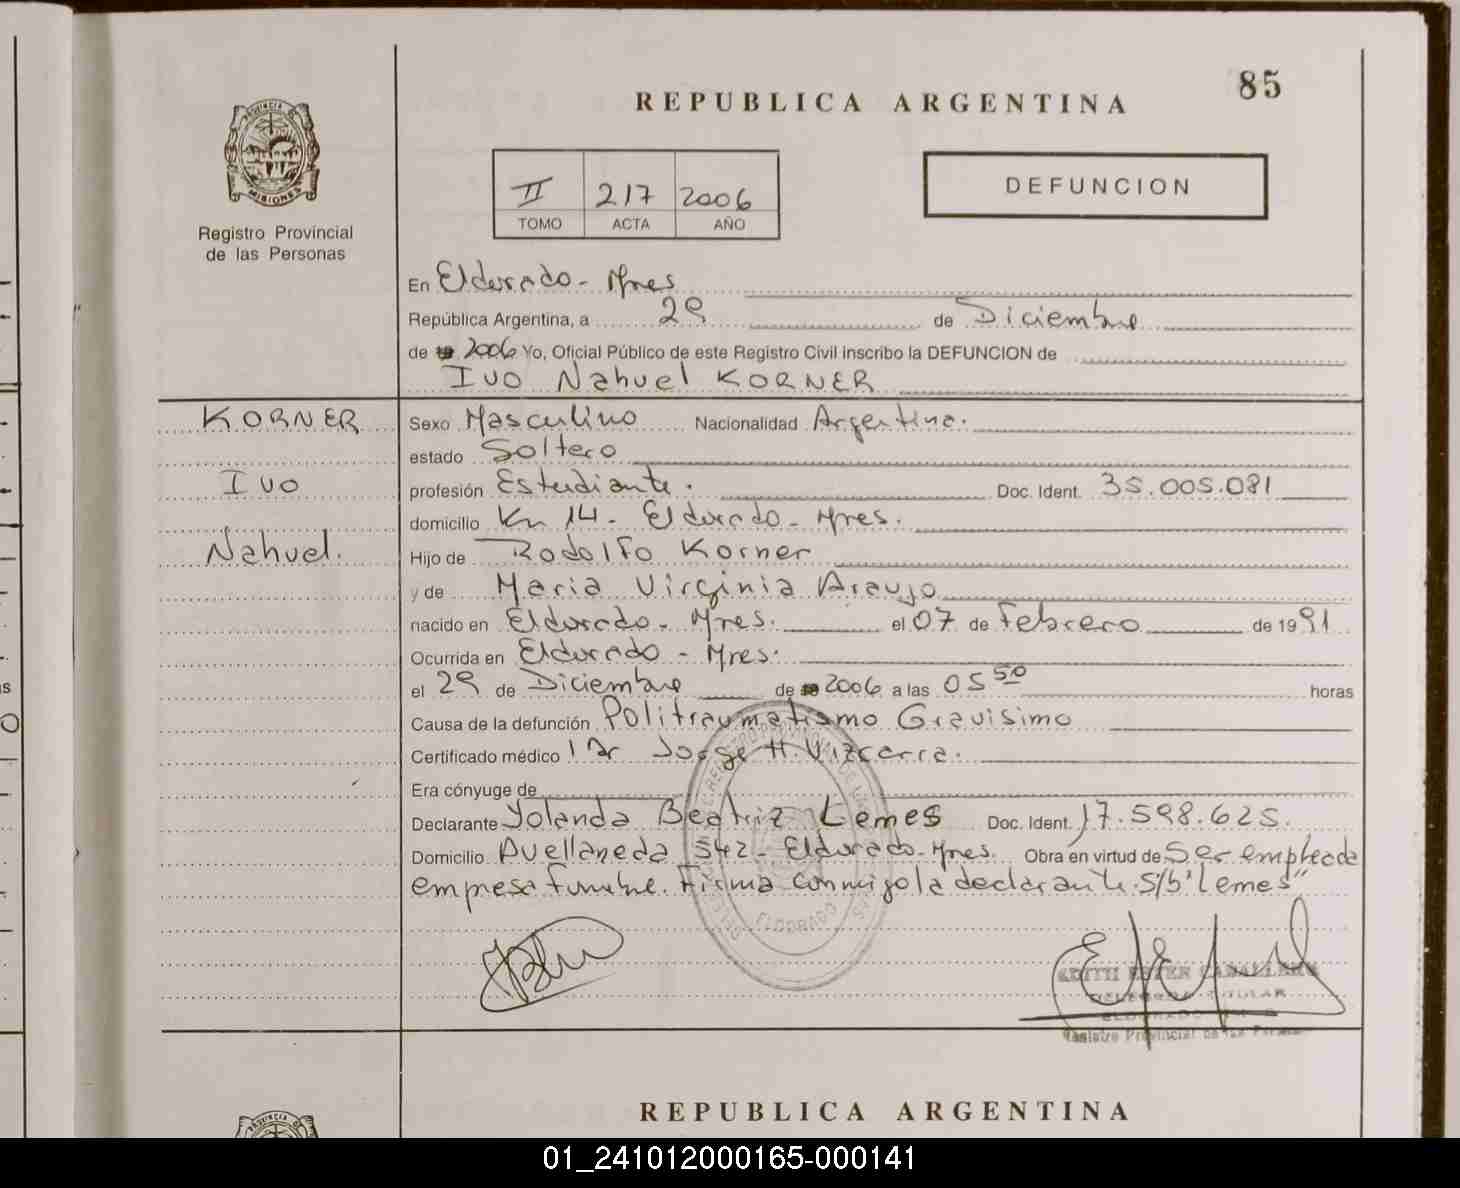 85
REPUBLICA ARGENTINA
PROVINCIA DE
MISIONES
Registro Provincial
de las Personas
II 217 2006
TOMO ACTA AÑO
DEFUNCION
En Eldorado - Mnes
República Argentina, a 29 de Diciembre
de 19 2006 Yo, Oficial Público de este Registro Civil inscribo la DEFUNCION de
Ivo Nahuel KORNER
KORNER
Ivo
Nahuel.
Sexo Masculino Nacionalidad Argentina.
estado Soltero
profesión Estudiante. Doc. Ident. 35.005.081
domicilio Km 14 - Eldorado - Mnes.
Hijo de Rodolfo Korner
y de Maria Virginia Araujo
nacido en Eldorado - Mnes. el 07 de Febrero de 1991
Ocurrida en Eldorado - Mnes.
el 29 de Diciembre de 19 2006 a las 05 50 horas
Causa de la defunción Politraumatismo Gravisimo
Certificado médico Dr Jorge H. Vizcarra.
Era cónyuge de
Declarante Yolanda Beatriz Lemes Doc. Ident. 17.598.625.
Domicilio Avellaneda 542 - Eldorado - Mnes. Obra en virtud de Ser empleada
empresa funebre. Firma conmigo la declarante. S/b "Lemes"
ELDORADO
EDITH ESTER CABALLERO
DELEGADA TITULAR
ELDORADO
Registro Provincial de las Personas
REPUBLICA ARGENTINA
PROVINCIA DE
01_241012000165-000141